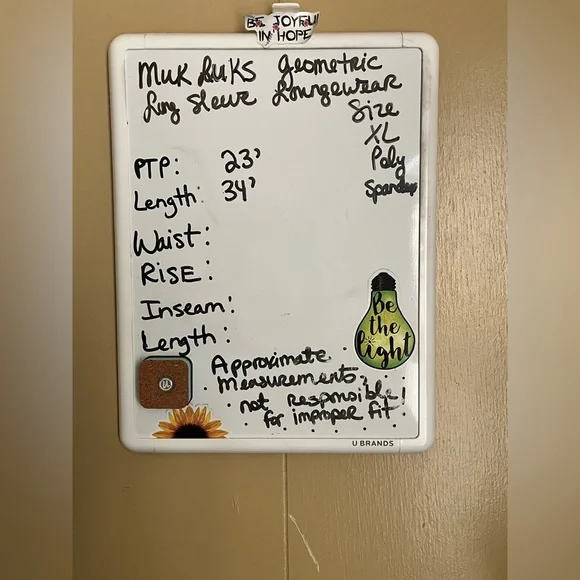 BE JOYFUL
IN HOPE
MUK LUKS Geometric
Long Sleeve Loungewear
Size
XL
PTP: 23' Poly
Length: 34' Spandex
Waist:
RISE:
Inseam:
Length:
Be
the
light
Approximate
measurements,
not responsible!
for improper fit
U BRANDS